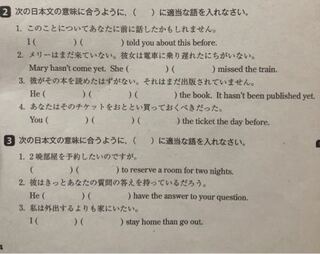 2 次の日本文の意味に合うように、( )に適当な語を入れなさい。
1. このことについてあなたに前に話したかもしれません。
I ( ) ( ) told you about this before.
2. メリーはまだ来ていない。彼女は電車に乗り遅れたにちがいない。
Mary hasn't come yet. She ( ) ( ) missed the train.
3. 彼がその本を読めたはずがない。それはまだ出版されていません。
He ( ) ( ) ( ) the book. It hasn't been published yet.
4. あなたはそのチケットをおととい買っておくべきだった。
You ( ) ( ) ( ) the ticket the day before.
3 次の日本文の意味に合うように、( )に適当な語を入れなさい。
1. 2晩部屋を予約したいのですが。
( ) ( ) ( ) to reserve a room for two nights.
2. 彼はきっとあなたの質問の答えを持っているだろう。
He ( ) ( ) have the answer to your question.
3. 私は外出するよりも家にいたい。
I ( ) ( ) stay home than go out.